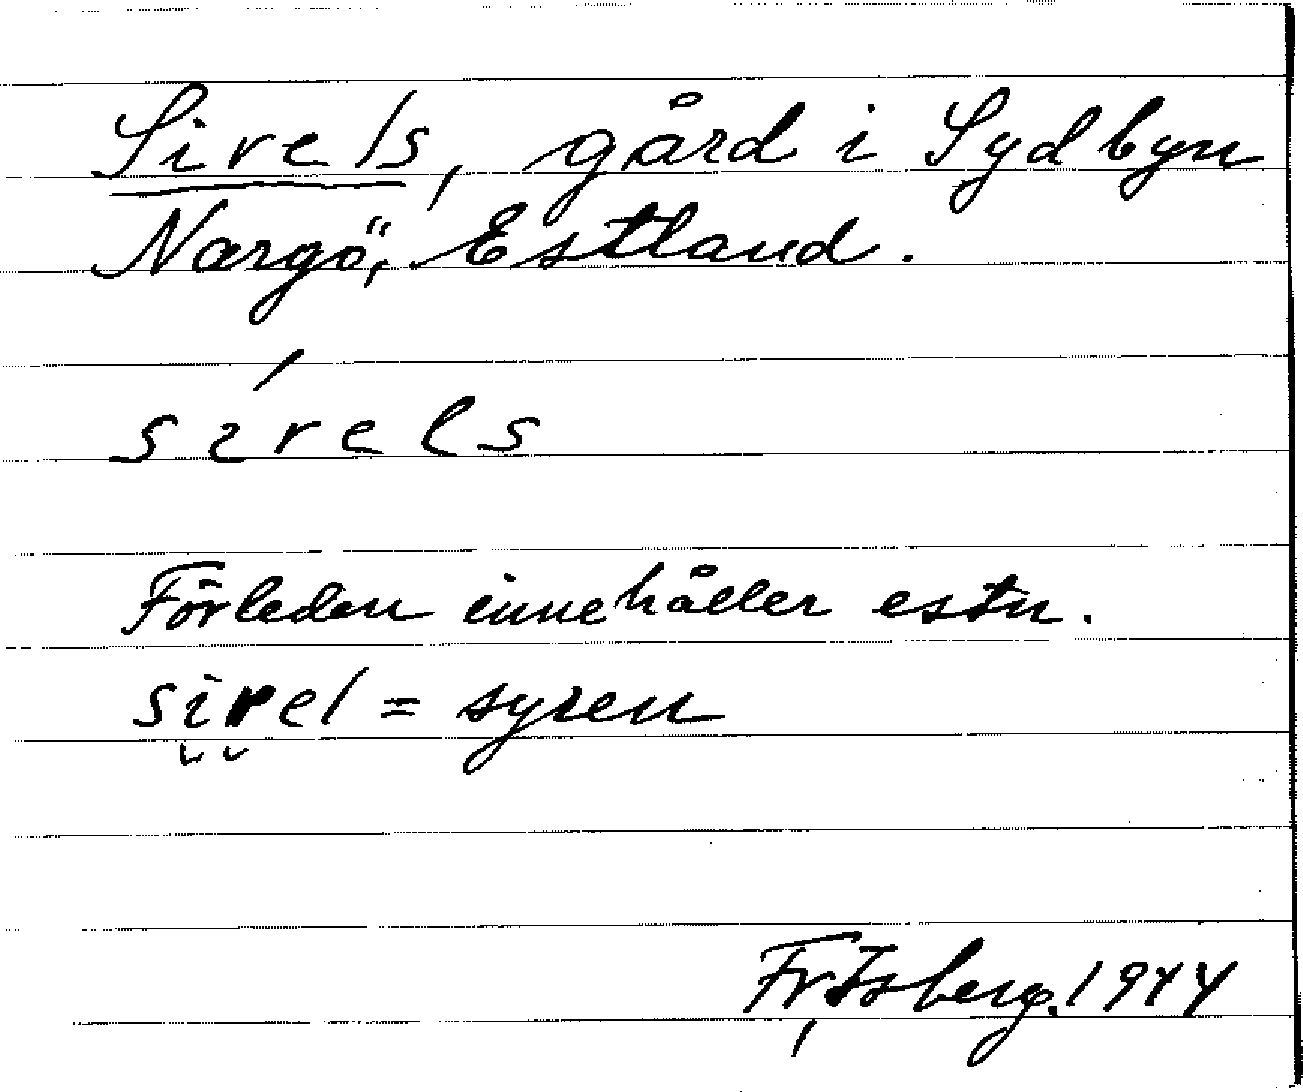 Sirels, gård i Sydbyn
Nargö, Estland.
sirels
Förleden innehåller estn.
sirel = syren
Fr, Isberg. 1944